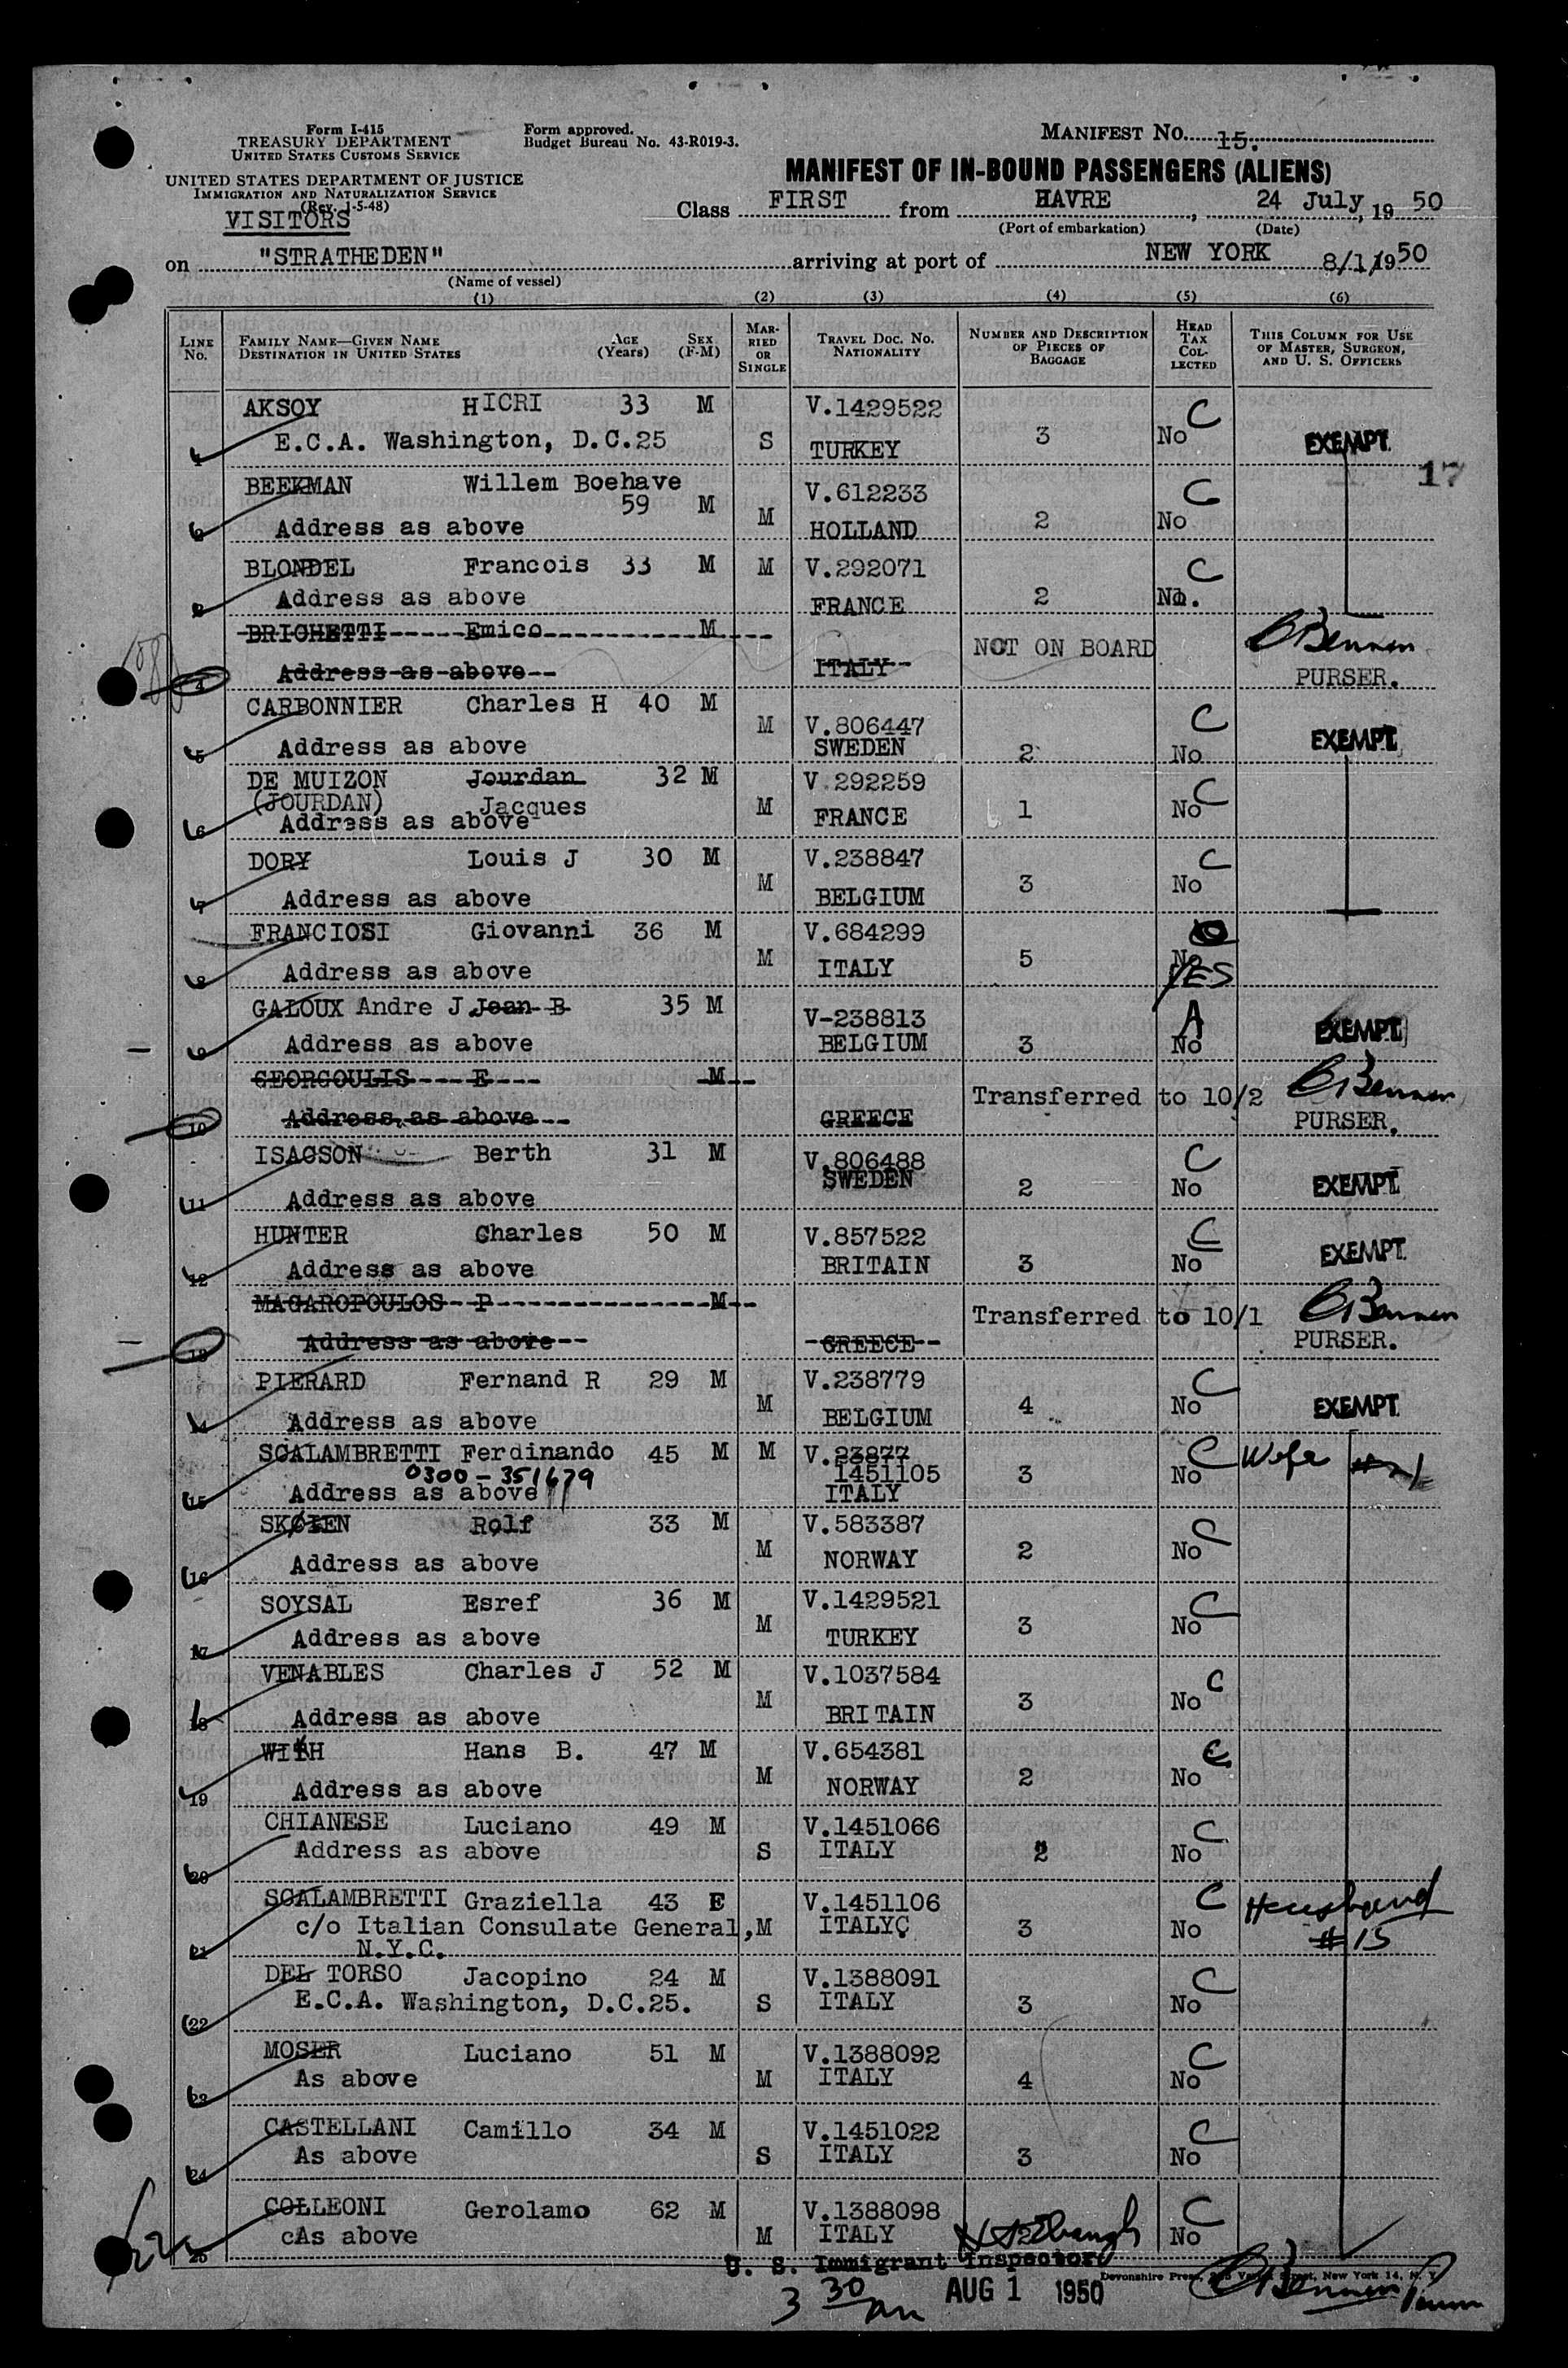 Form I-415
TREASURY DEPARTMENT
UNITED STATES CUSTOMS SERVICE
UNITED STATES DEPARTMENT OF JUSTICE
IMMIGRATION AND NATURALIZATION SERVICE
(Rev. 1-5-48)
VISITORS
Form approved.
Budget Bureau No. 43-R019-3.
MANIFEST NO. 15.
MANIFEST OF IN-BOUND PASSENGERS (ALIENS)
Class FIRST from HAVRE, 24 July, 19 50
(Port of embarkation) (Date)
on "STRATHEDEN" arriving at port of NEW YORK 8/1/1950
(Name of vessel)
(1) (2) (3) (4) (5) (6)
LINE NO.
FAMILY NAME—GIVEN NAME DESTINATION IN UNITED STATES
AGE (Years)
SEX (F-M)
MARRIED OR SINGLE
TRAVEL DOC. NO. NATIONALITY
NUMBER AND DESCRIPTION OF PIECES OF BAGGAGE
HEAD TAX COLLECTED
THIS COLUMN FOR USE OF MASTER, SURGEON, AND U. S. OFFICERS
AKSOY HICRI 33 M V.1429522 C
1 E.C.A. Washington, D.C.25 S TURKEY 3 No EXEMPT
17
BEEKMAN Willem Boehave V.612233 C
59 M M
2 Address as above HOLLAND 2 No
BLONDEL Francois 33 M M V.292071 C
3 Address as above FRANCE 2 No.
BRIGHETTI Emico M NOT ON BOARD
4 Address as above ITALY PURSER.
CARBONNIER Charles H 40 M M V.806447 C EXEMPT
5 Address as above SWEDEN 2 No
DE MUIZON Jourdan 32 M V.292259 C
(JOURDAN) Jacques M FRANCE 1 No
6 Address as above
DORY Louis J 30 M V.238847 C
7 Address as above M BELGIUM 3 No
FRANCIOSI Giovanni 36 M V.684299
8 Address as above M ITALY 5 No
YES
GALOUX Andre J Jean B 35 M V-238813 A EXEMPT
9 Address as above BELGIUM 3 No
GEORGOULIS E M Transferred to 10/2
10 Address as above GREECE PURSER.
ISACSON Berth 31 M V.806488 C
11 Address as above SWEDEN 2 No EXEMPT
HUNTER Charles 50 M V.857522 C EXEMPT
12 Address as above BRITAIN 3 No
MAGAROPOULOS P M Transferred to 10/1
13 Address as above GREECE PURSER.
PIERARD Fernand R 29 M V.238779 C
14 Address as above M BELGIUM 4 No EXEMPT
SCALAMBRETTI Ferdinando 45 M M V.23877 C Wife #21
0300-351679 1451105 3 No
15 Address as above ITALY
SKOIEN Rolf 33 M V.583387 C
16 Address as above M NORWAY 2 No
SOYSAL Esref 36 M V.1429521 C
17 Address as above M TURKEY 3 No
VENABLES Charles J 52 M V.1037584 C
18 Address as above M BRITAIN 3 No
WITH Hans B. 47 M V.654381 C
19 Address as above M NORWAY 2 No
CHIANESE Luciano 49 M V.1451066 C
20 Address as above S ITALY 2 No
SCALAMBRETTI Graziella 43 F V.1451106 C Husband
21 c/o Italian Consulate General, M ITALYÇ 3 No #15
N.Y.C.
DEL TORSO Jacopino 24 M V.1388091 C
22 E.C.A. Washington, D.C.25. S ITALY 3 No
MOSER Luciano 51 M V.1388092 C
23 As above M ITALY 4 No
CASTELLANI Camillo 34 M V.1451022 C
24 As above S ITALY 3 No
COLLEONI Gerolamo 62 M V.1388098 C
25 cAs above M ITALY No
U. S. Immigrant Inspector
Devonshire Press, Street, New York 14, N. Y.
3 30 AUG 1 1950